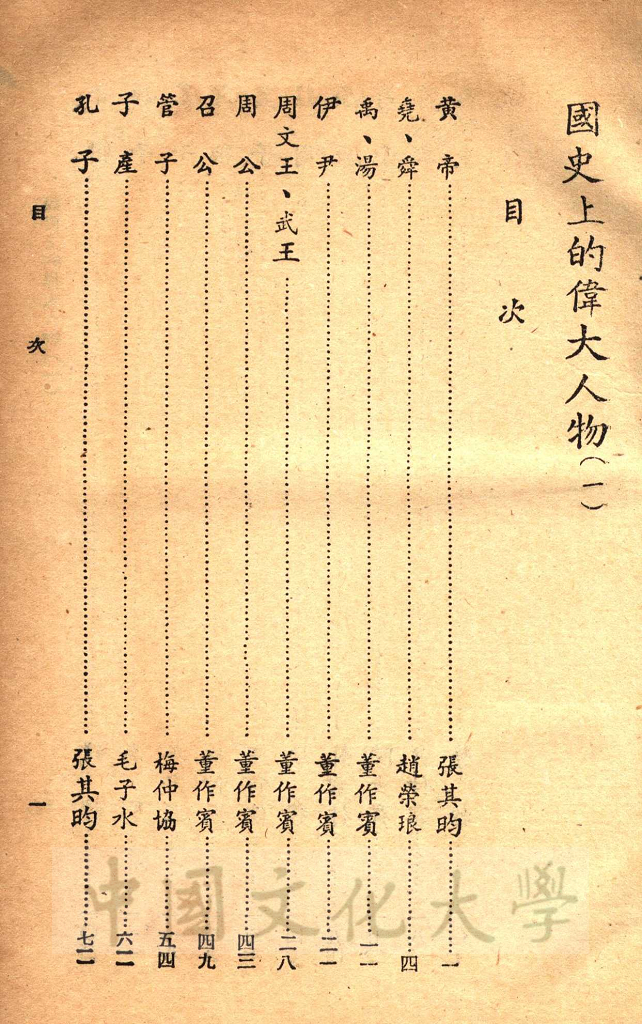 國史上的偉大人物(一)
目次
黃帝……張其昀……一
堯、舜……趙榮琅……四
禹、湯……董作賓……一一
伊尹……董作賓……二一
周文王、武王……董作賓……二八
周公……董作賓……四三
召公……董作賓……四九
管子……梅仲協……五四
子產……毛子水……六二
孔子……張其昀……七二
目次 一
中國文化大學